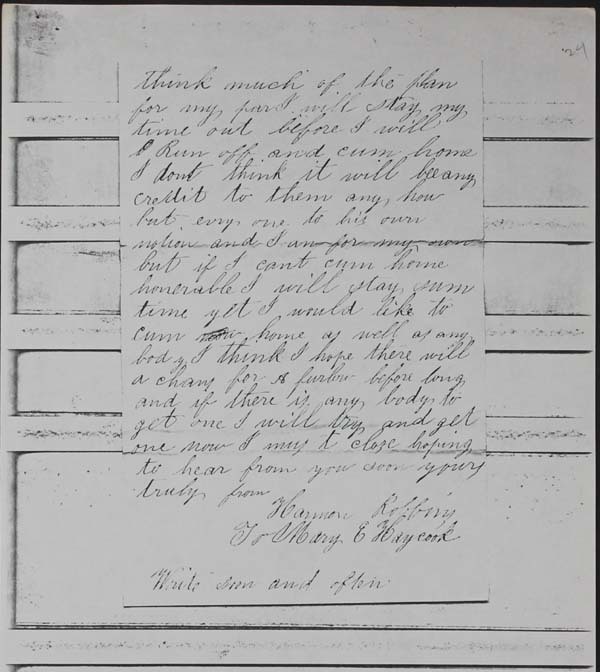 24
think much of the plan
for my part I will stay my
time out before I will
Run off and cum home
I dont think it will bee any
credit to them any how
but evry one to his own
notion and I am for my own
but if I cant cum home
honerable I will stay sum
time yet I would like to
cum home as well as any
body I think I hope there will
a chans for A furlow before long
and if there is any body to
get one I will try and get
one now I must close hoping
to hear from you soon yours
truly from
Harmon
To Mary E Haycock
Write soon and often